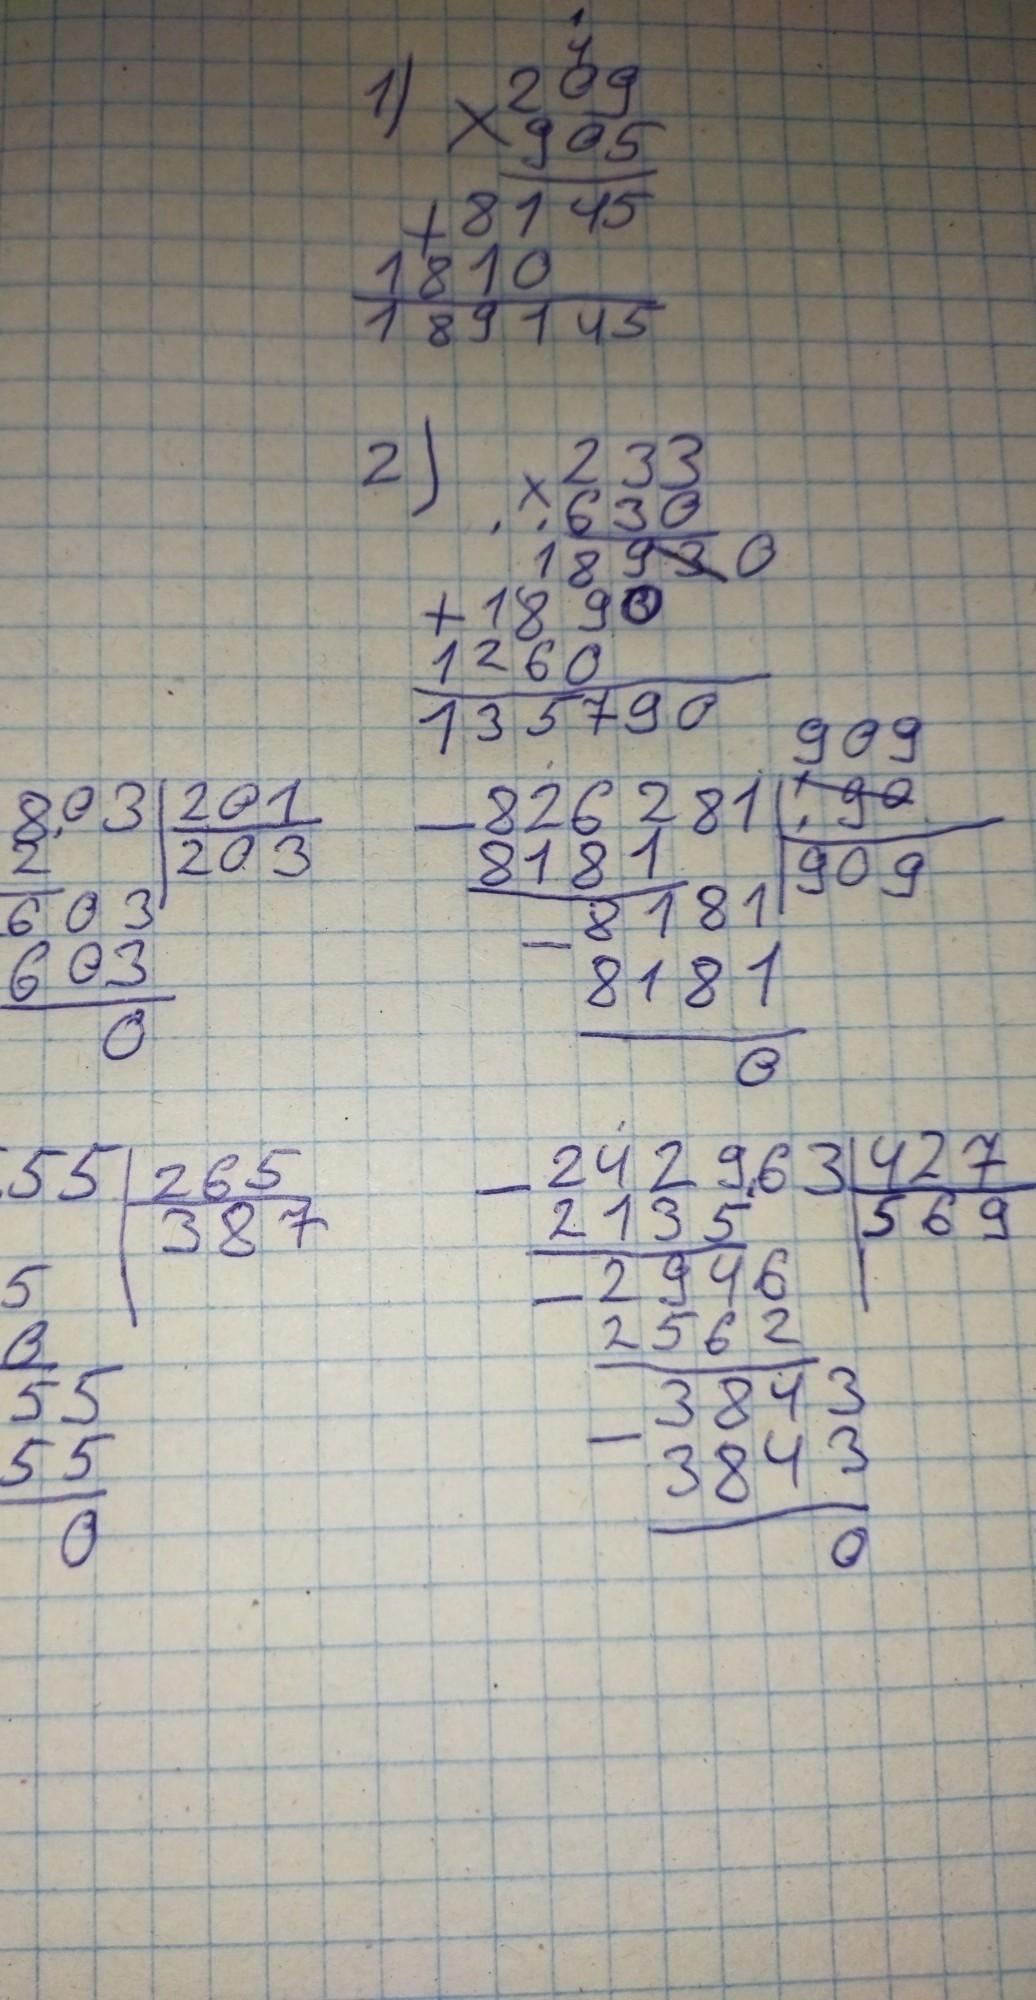 1) 209
× 905
+ 8145
1810
189145
2) 233
× 630
1890
+ 1890
1260
135790
909
803 | 201
2 | 203
603
603
0
- 826281
8181 | 909
- 8181
8181
0
55 | 265
387
5
0
55
55
0
- 242963 | 427
2135 | 569
- 2946
2562
- 3843
3843
0